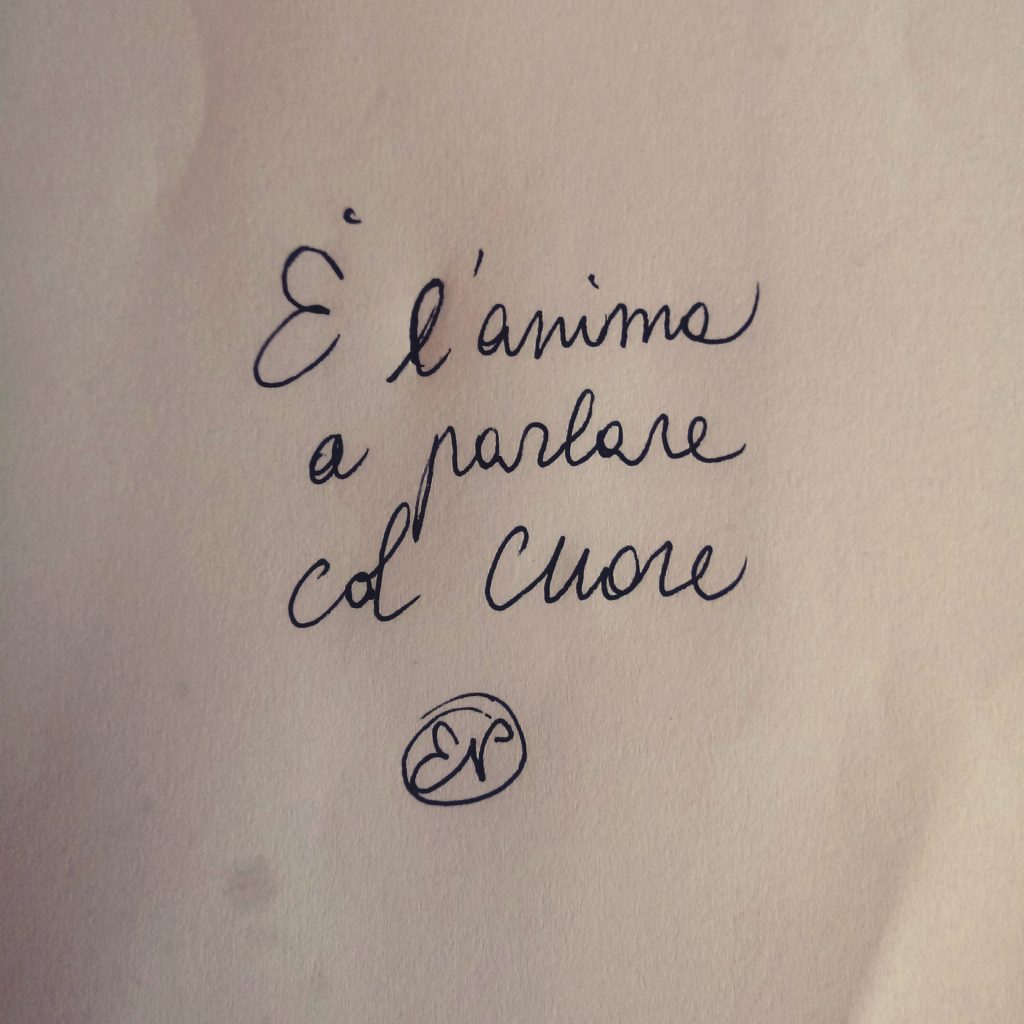 È l'anima
a parlare
col cuore
EN